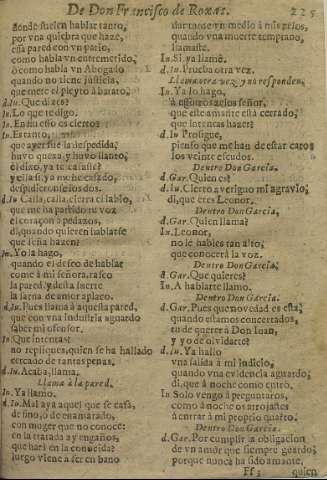 De Don Francisco de Roxas. 225
donde suelen hablar tanto,
por vna quiebra que haze,
essa pared con vn palo,
como habla vn entremetido,
ò como habla vn Abogado
quando no tiene justicia,
que mete el pleyto à barato,
d.Iu. Que dizes?
In. Lo que te digo.
In. En fin esso es cierto?
In. Es tanto,
que ayer fue la despedida,
huvo quexa, y huvo llanto,
el dixo, ya te casaste?
y ella si, ya me he casado,
despidieronse los dos.
d.Iu Calla, calla, cierra el labio,
que me ha partido tu voz
el coraçon à pedazos,
di, quando quieren hablarse
que seña hazen?
In. Yo la hago,
quando el desseo de hablar
come à mi señora, rasco
la pared, y desta suerte
la sarna de amor aplaco.
d.Iu. Pues llama à aquessa pared,
que con vna industria aguardo
saber mi ofensor.
In. Que intentas?
no repliques, quien se ha hallado
cercado de tantas penas.
d.Iu. Acaba, llama.
Llama à la pared.
In. Ya llamo.
d.Iu. Mal aya aquel que se casa,
de fino, ò de enamorado,
con muger que no conoce:
en la tratada ay engaños,
que harà en la conocida?
luego viene à ser en vano
dar tarde vn medio à mis zelos,
quando vna muerte temprano,
llamaste.
In. Si, ya llamè.
d.Iu. Prueba otra vez.
Llama otra vez, y no responden.
In. Ya lo hago,
à essotros zelos señor,
que este amante està cerrado,
que intentas hazer?
d.Iu. Prosigue,
pienso que me han de estar caros
los veinte escudos.
Dentro Don Garcia.
d.Gar. Quien es?
d.Iu. Cierto averiguo mi agravio,
di, que eres Leonor.
Dentro Don Garcia,
d.Gar. Quien llama?
In. Leonor,
no le hables tan alto,
que conocerà la voz.
Dentro Don Garcia.
d.Gar. Que quieres?
In. A hablarte llamo.
Dentro Don Garcia.
d.Gar. Pues que novedad es esta,
quando estamos concertados,
tu de querer à Don Iuan,
y yo de olvidarte?
d.Iu. Ya hallo
vna salida à mi indicio,
quando vna evidencia aguardo;
di, que à noche como entrò.
In Solo vengo à preguntaros,
como à noche os arrojastes
à entrar à mi propio quarto.
Dentro Don Garcia.
d.Gar. Por cumplir la obligacion
de vn amor que siempre guardo;
porque nunca ha sido amante,
Ff 3 quien